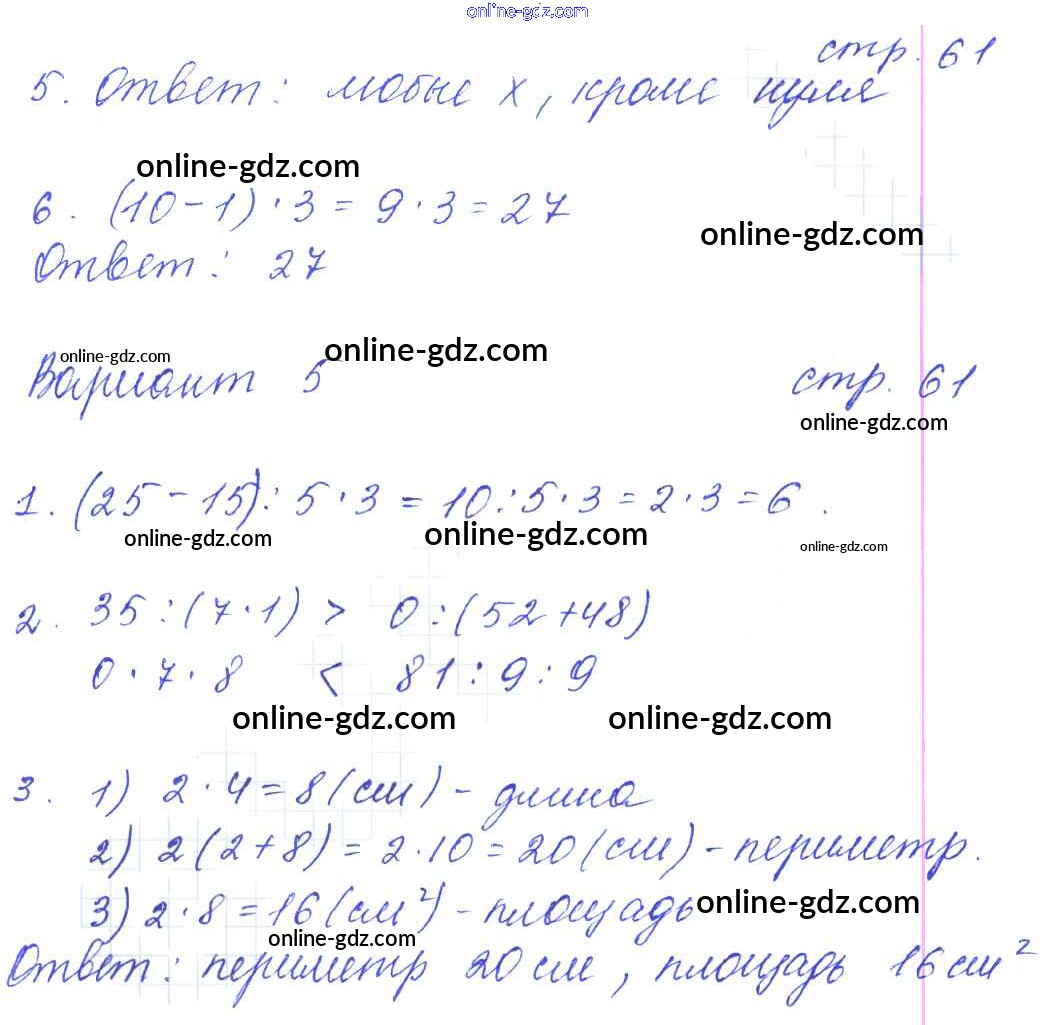 online-gdz.com
стр. 61
5. Ответ: любые х, кроме нуля
online-gdz.com
6. (10-1)·3=9·3=27
online-gdz.com
Ответ: 27
online-gdz.com
online-gdz.com
Вариант 5
стр. 61
online-gdz.com
1. (25-15):5·3=10:5·3=2·3=6.
online-gdz.com
online-gdz.com
online-gdz.com
2. 35:(7·1) > 0:(52+48)
0·7·8 < 81:9:9
online-gdz.com
online-gdz.com
3. 1) 2·4=8(см)-длина
2) 2(2+8)=2·10=20(см)-периметр.
3) 2·8=16(см²)-площадь
online-gdz.com
online-gdz.com
Ответ: периметр 20см, площадь 16см²